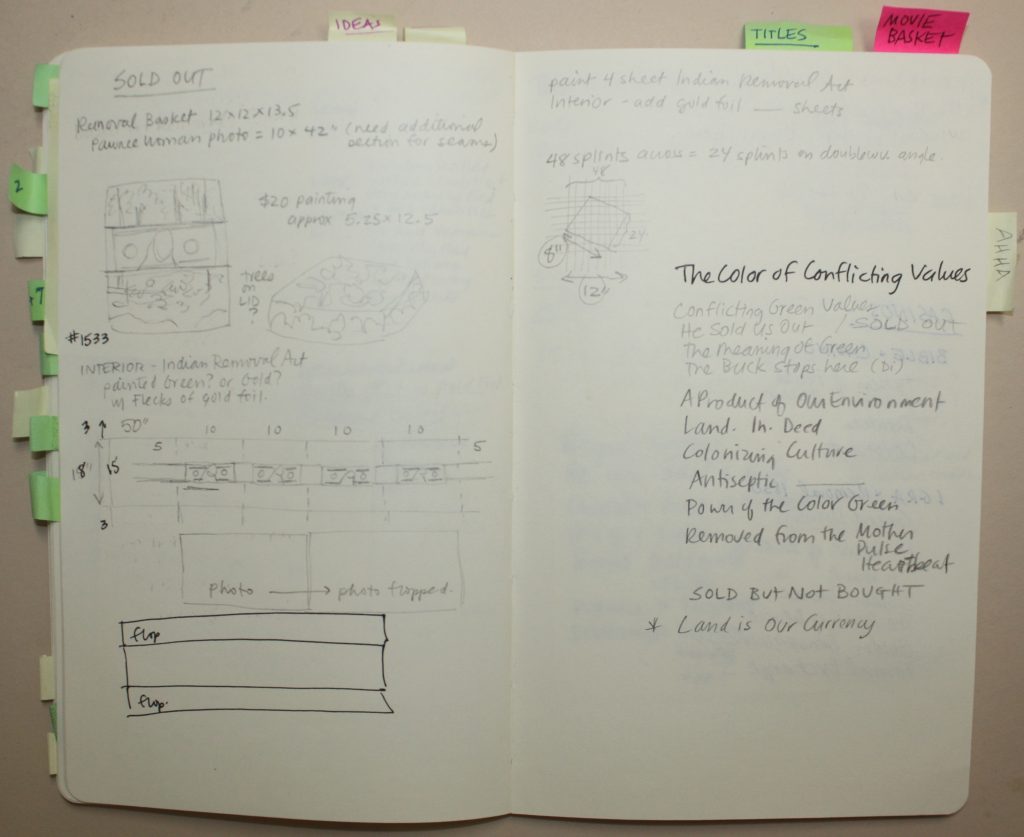 IDEAS
TITLES
MOVIE
BASKET
2
7
AHHA
SOLD OUT
Removal Basket 12x12x13.5
Pawnee Woman photo = 10 x 42" (need additional
section for seams)
$20 painting
approx 5.25 x 12.5
trees
on
LID
?
#1533
INTERIOR - Indian Removal Act
painted Green? or Gold?
w/ Flecks of gold foil.
3
50"
10
10
10
10
5
5
18"
15
3
photo → photo flopped.
flop
flop.
paint 4 sheet Indian Removal Act
Interior - add gold foil — sheets
48 splints across = 24 splints on doubleweave angle.
48
24
8"
12"
The Color of Conflicting Values
Conflicting Green Values
He Sold Us Out / SOLD OUT
The Meaning of Green
The Buck Stops here (Di)
A Product of Our Environment
Land. In. Deed
Colonizing Culture
Antiseptic
Power of the Color Green
Removed from the Mother
Pulse
Heartbeat
SOLD BUT NOT BOUGHT
* Land is Our Currency